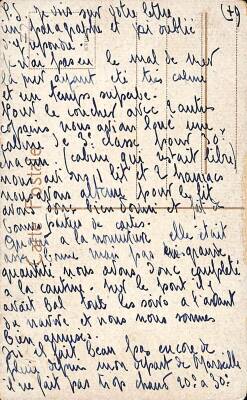 P.S. Je vois sur votre lettre (4)
un paragraphe et j'ai oublié
d'y répondre.
J'ai pas eu le mal de mer
la mer ayant été très calme
et un temps superbe.
Pour le coucher avec 2 autres
copains nous avions loué une
cabine de 3ᵉ classe pour 50
chacun. (cabine qui restait libre)
nous avions 1 lit et 2 hamacs
nous avons pour le lit
avons donc bien dormi et fait de
bonnes parties de cartes.
Quant à la nourriture elle était
bonne mais pas en grande
quantité nous avons donc complété
à la cantine. Sur le pont il y
avait Bal tous les soirs à l'avant
du navire et nous nous sommes
bien amusés.
Ici il fait beau pas encore de
pluie depuis mon départ de Marseille
il ne fait pas trop chaud 20° à 30°.
Carte Postale